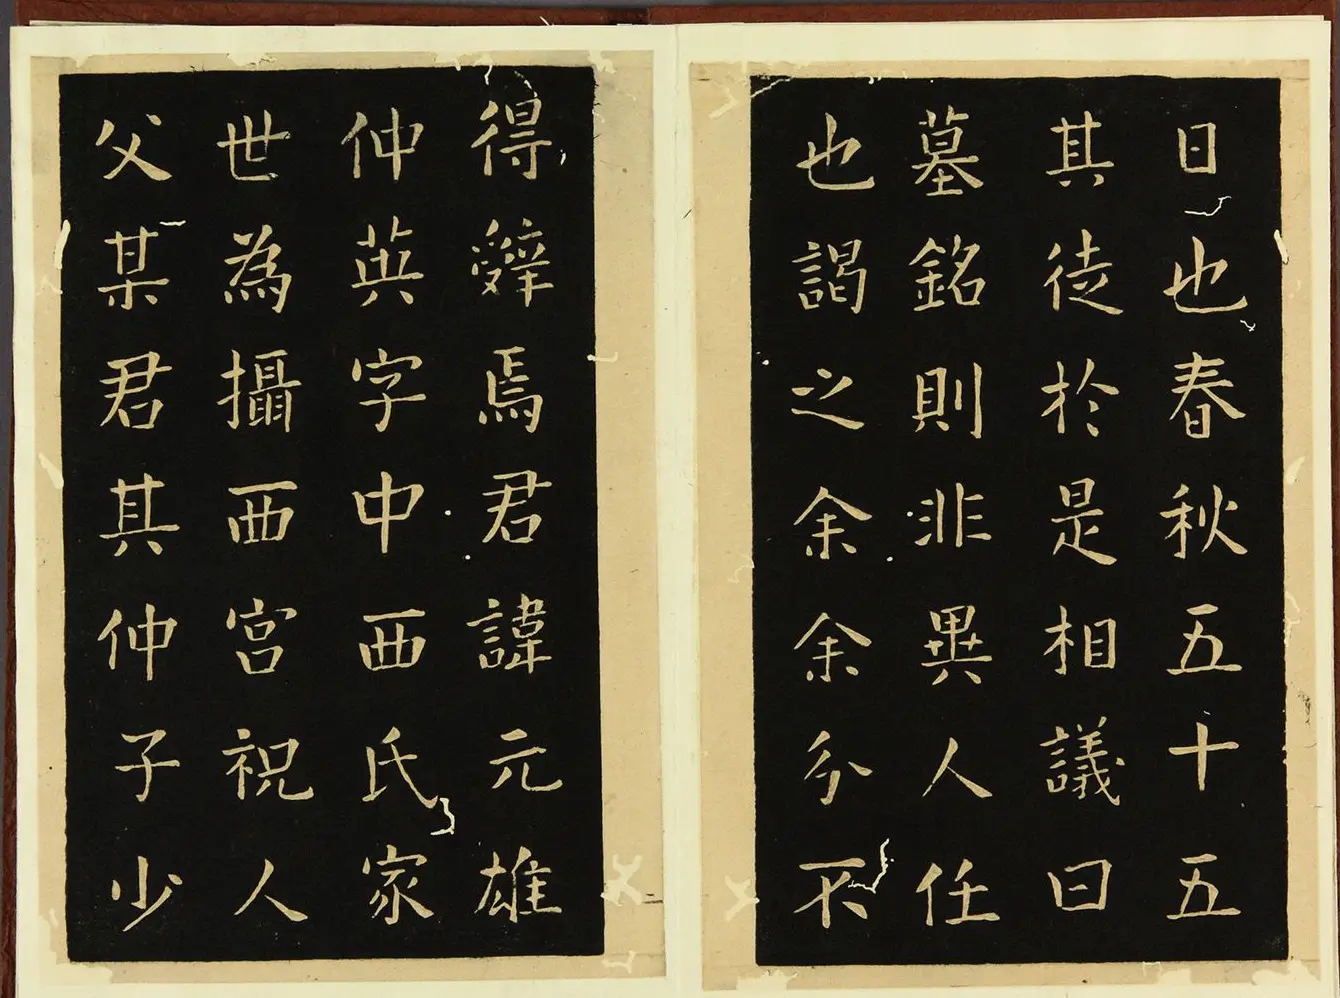 日也春秋五十五
其徒於是相議曰
墓銘則非異人任
也謁之余余分不
得辤焉君諱元雄
仲英字中西氏家
世為攝西宮祝人
父某君其仲子少